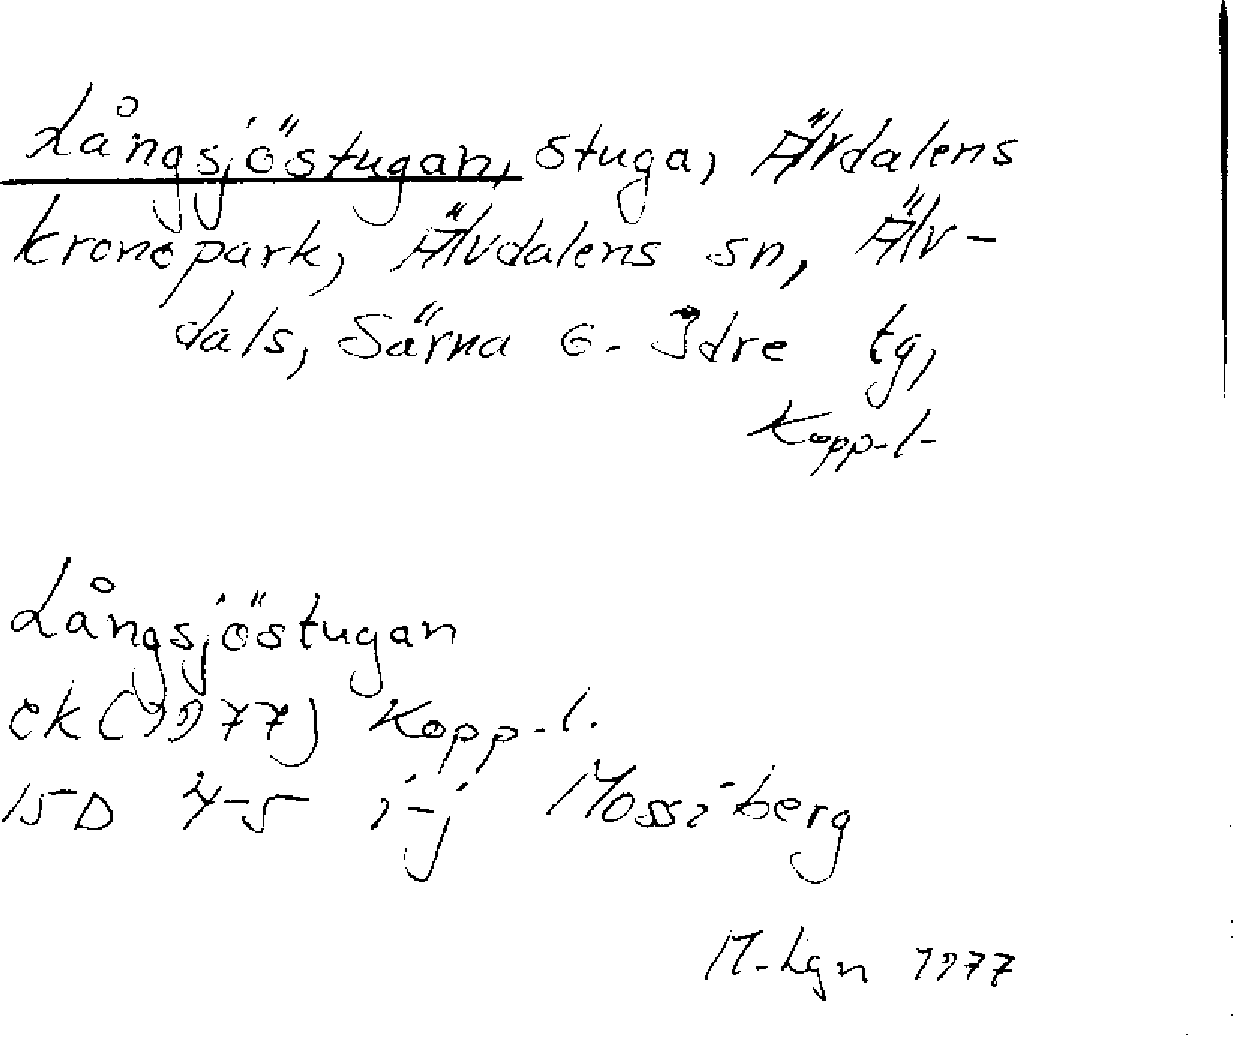 Långsjöstugan, stuga, Älvdalens
kronopark, Älvdalens sn, Älv-
dals, Särna o. Idre tg,
Kopp. l.
Långsjöstugan
ek (1977) Kopp. l.
15 D 4-5 i-j Mossiberg
M. Lgn 1977